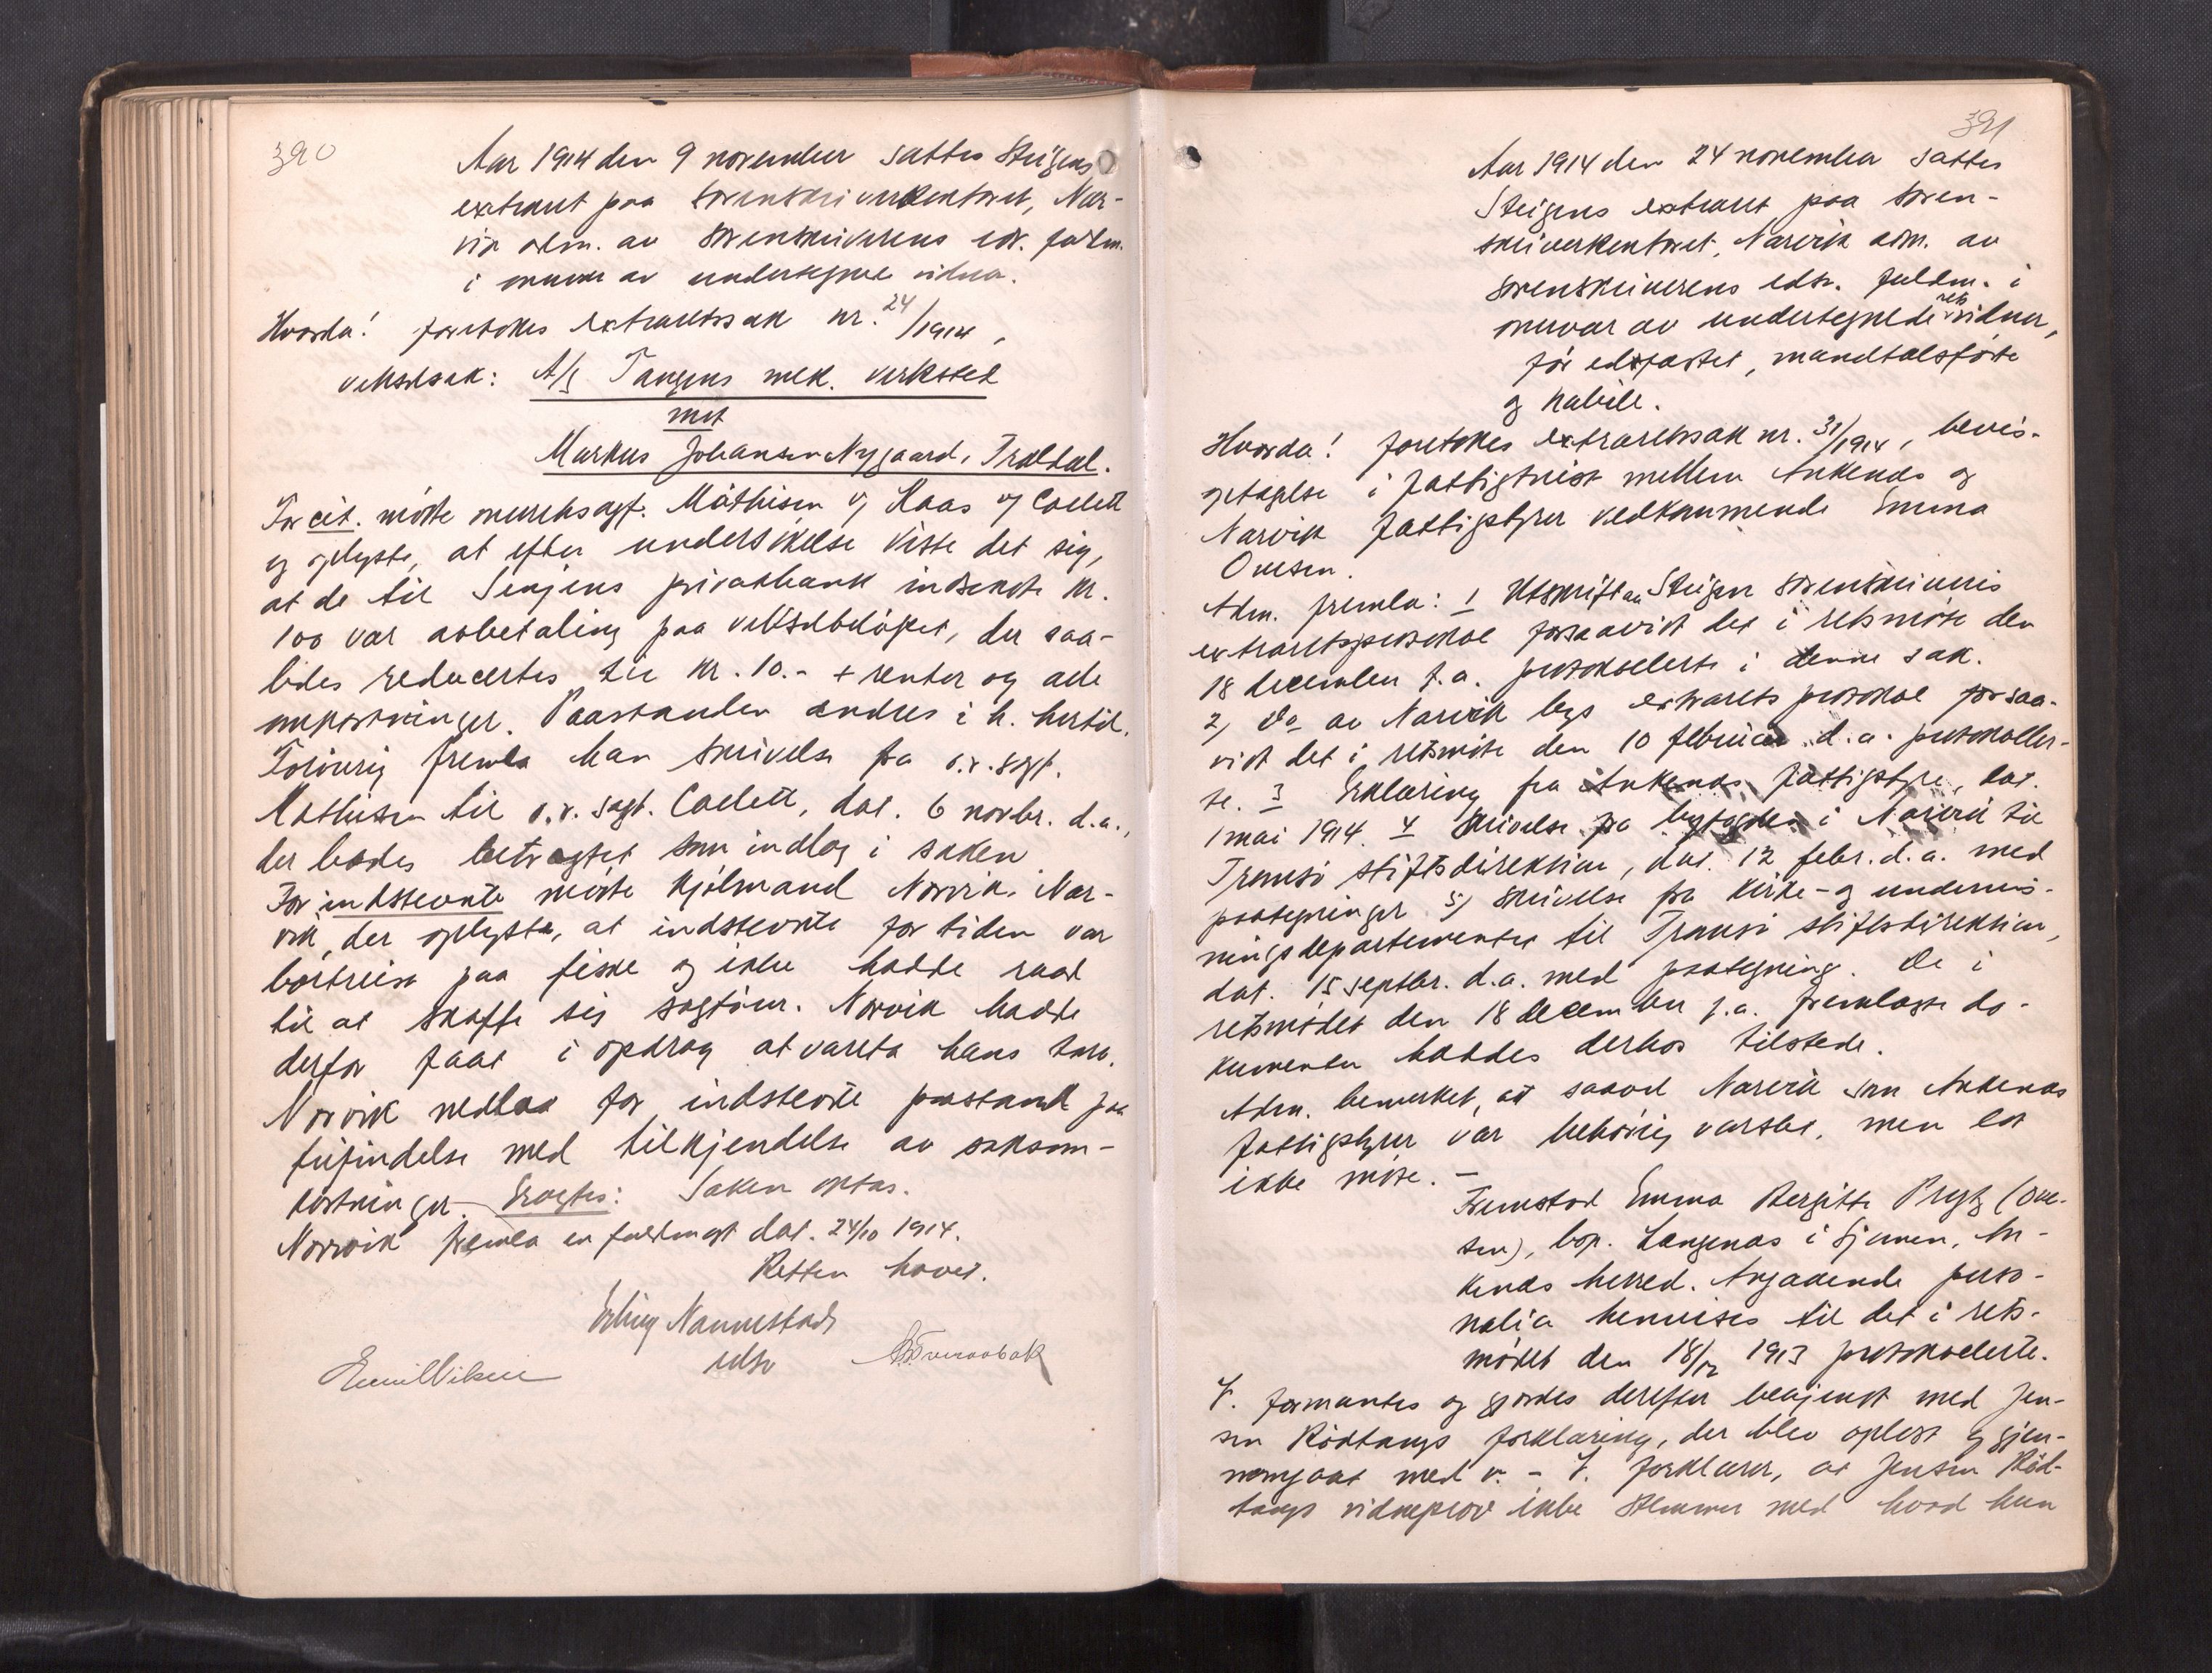 390
Aar 1914 den 9 november sattes Steigens
extraret paa sorenskriverkontoret, Nar-
vik adm. av sorenskriverens edsv. fuldm.
i overvær av undertegnede vidner.
Hvorda! foretokes extraretssak nr. 24/1914,
vekselsak: A/S Tangens mek. verksted
mot
Markus Johansen Nygaard, Traldal.
For cit. møtte overretssagf. Mathisen og Kaas og Collett
og oplyste, at efter undersøkelse viste det sig,
at de til Senjens privatbank indsendte kr.
100 var avbetaling paa vekselbeløpet, der saa-
ledes reducertes til kr. 10.- + renter og alle
omkostninger. Paastanden ændres i h. hertil.
Forøvrig fremla han skrivelse fra o.r.sagf.
Mathisen til o.r.sagf. Collett, dat. 6 novbr. d.a.,
der bedes betragtet som indlæg i saken
For indstevnte møtte kjøbmand Norvik, Nar-
vik, der oplyste, at indstevnte for tiden var
bortreist paa fiske og ikke hadde raad
til at skaffe sig sagfører. Norvik hadde
derfor faat i opdrag at vareta hans tarv.
Norvik nedlaa for indstevnte paastand paa
frifindelse med tilkjendelse av saksom-
kostninger. Eragtes: Saken optas.
Norvik fremla en fuldmagt dat. 24/10 1914.
Retten hævet.
Erling Nannestad
edsv
Emil Nilsen
391
Aar 1914 den 24 november sattes
Steigens extraret paa soren-
skriverkontoret, Narvik adm. av
sorenskriverens edsv. fuldm. i
overvær av undertegnede retsvidner,
før edfæstet, mandtalsførte
og habile.
Hvorda! foretokes extraretssak nr. 31/1914, bevis-
optagelse i fattigtvist mellem Ankenes og
Narvik fattigstyrer vedkommende Emma
Ovesen.
Adm. fremla: 1 Utskrift av Steigen sorenskriveris
extraretsprotokol forsaavidt det i retsmøte den
18 december f.a. protokollerte i denne sak.
2) Do av Narvik bys extrarets protokol forsaa-
vidt det i retsmøte den 10 februar d.a. protokoller-
te. 3 Erklæring fra Ankenes fattigstyre, dat.
1 mai 1914. 4 Skrivelse fra byfogden i Narvik til
Tromsø stiftsdirektion, dat. 12 febr. d.a. med
paategninger 5) skrivelse fra Kirke- og undervis-
ningsdepartementet til Tromsø stiftsdirektion,
dat. 15 septbr. d.a. med paategning. De i
retsmødet den 18 december f.a. fremlagte do-
kumenter haddes derhos tilstede.
Adm. bemerket, at saavel Narvik som Ankenes
fattigstyrer var behørig varslet, men lot
ikke møte. -
Fremstod Emma Bergitte Prytz (Ove-
sen), bop. Langenes i Sjomen, An-
kenes herred. Angaaende perso-
nalia henvises til det i rets-
mødet den 18/12 1913 protokollerte.
V. formantes og gjordes derefter bekjendt med Jen-
sen Rødtangs forklaring, der blev oplæst og gjen-
nemgaat med v. - V. forklarer, at Jensen Rød-
tangs vidneprov ikke stemmer med hvad hun